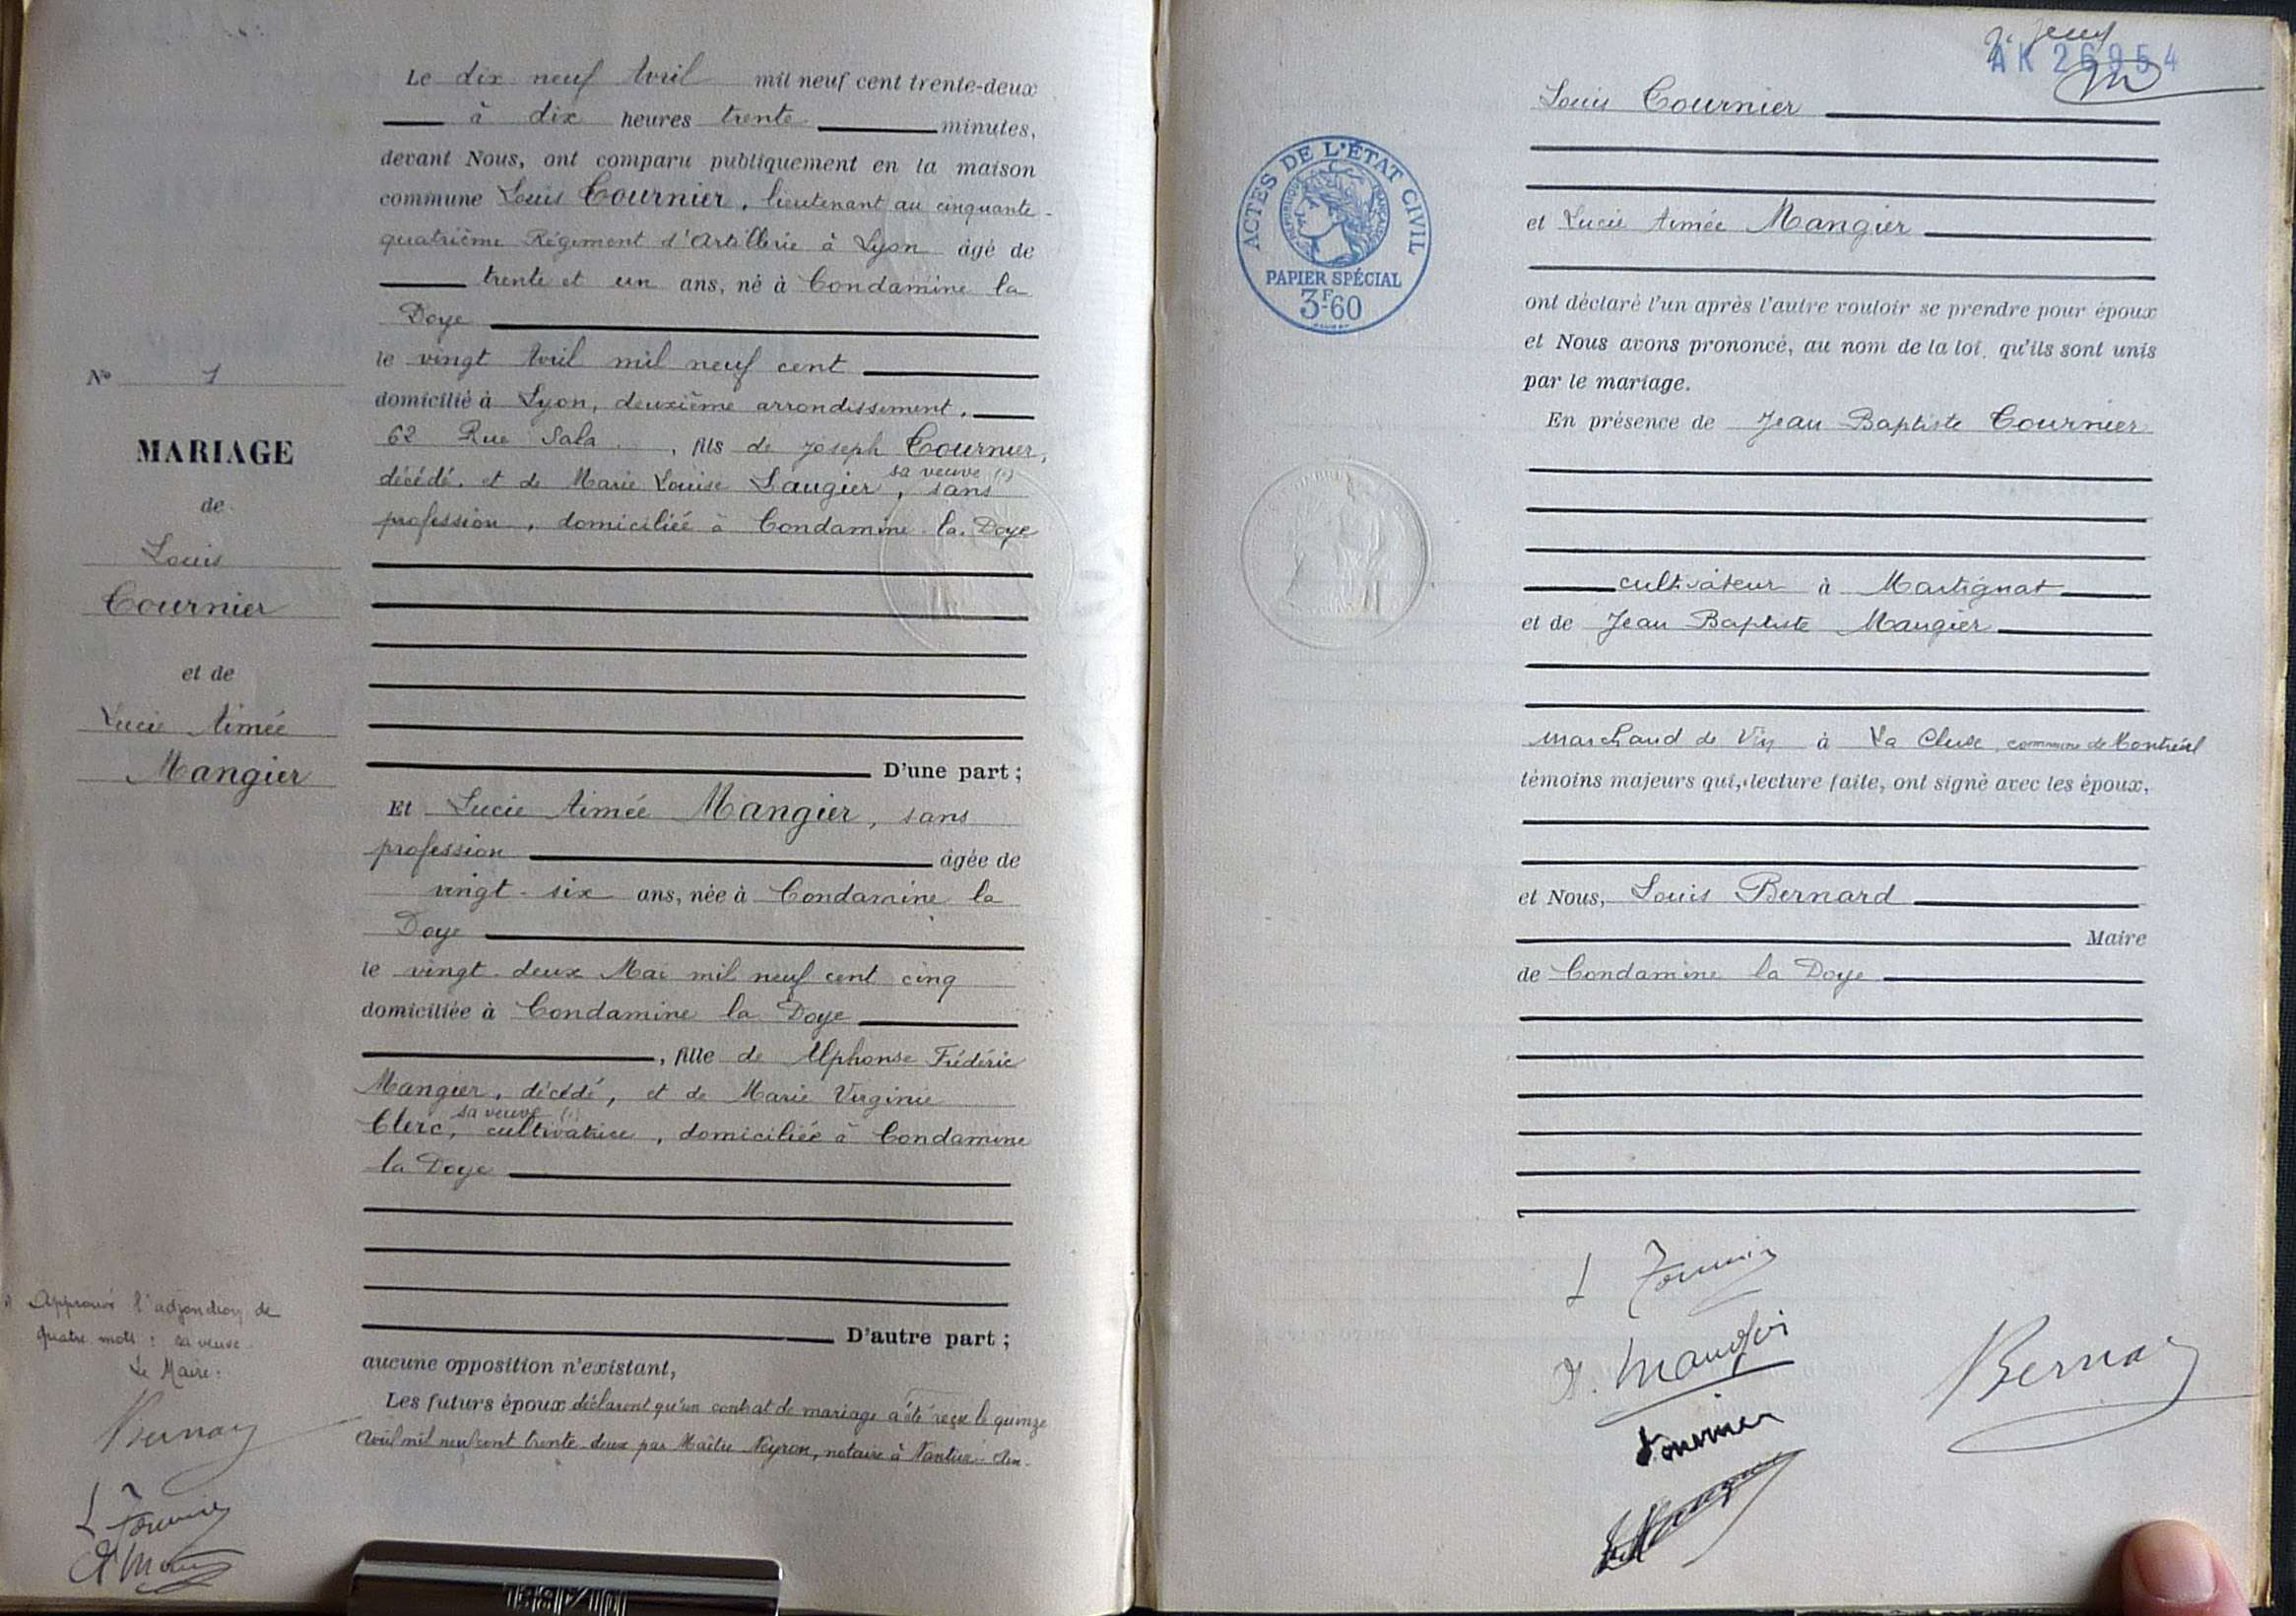 Le dix neuf Avril mil neuf cent trente-deux
à dix heures trente minutes,
devant Nous, ont comparu publiquement en la maison
commune Louis Tournier, lieutenant au cinquante-
quatrième Régiment d'Artillerie à Lyon âgé de
trente et un ans, né à Condamine la
Doye
le vingt Avril mil neuf cent
domicilié à Lyon, deuxième arrondissement,
62 Rue Sala, fils de Joseph Tournier,
sa veuve (1)
décédé, et de Marie Louise Laugier, sans
profession, domiciliée à Condamine la Doye
N° 1
MARIAGE
de
Louis
Tournier
et de
Lucie Aimée
Mangier
D'une part ;
Et Lucie Aimée Mangier, sans
profession âgée de
vingt-six ans, née à Condamine la
Doye
le vingt-deux Mai mil neuf cent cinq
domiciliée à Condamine la Doye
, fille de Alphonse Frédéric
Mangier, décédé, et de Marie Virginie
sa veuve (1)
Clerc, cultivatrice, domiciliée à Condamine
la Doye
D'autre part ;
aucune opposition n'existant,
Les futurs époux déclarent qu'un contrat de mariage a été reçu le quinze
Avril mil neuf cent trente-deux par Maître Neyron, notaire à Nantua. Ain.
Approuvé l'adjonction de
quatre mots : sa veuve.
Le Maire :
Bernard
L Tournier
AK 26954
Louis Tournier
ACTES DE L'ÉTAT CIVIL
RÉPUBLIQUE FRANÇAISE
PAPIER SPÉCIAL
3F60
et Lucie Aimée Mangier
ont déclaré l'un après l'autre vouloir se prendre pour époux
et Nous avons prononcé, au nom de la loi, qu'ils sont unis
par le mariage.
En présence de Jean Baptiste Tournier
cultivateur à Martignat
et de Jean Baptiste Mangier
marchand de Vin à La Cluse, commune de Montréal
témoins majeurs qui, lecture faite, ont signé avec les époux,
et Nous, Louis Bernard
Maire
de Condamine la Doye
L Tournier
A. Mangier
Tournier
Bernard